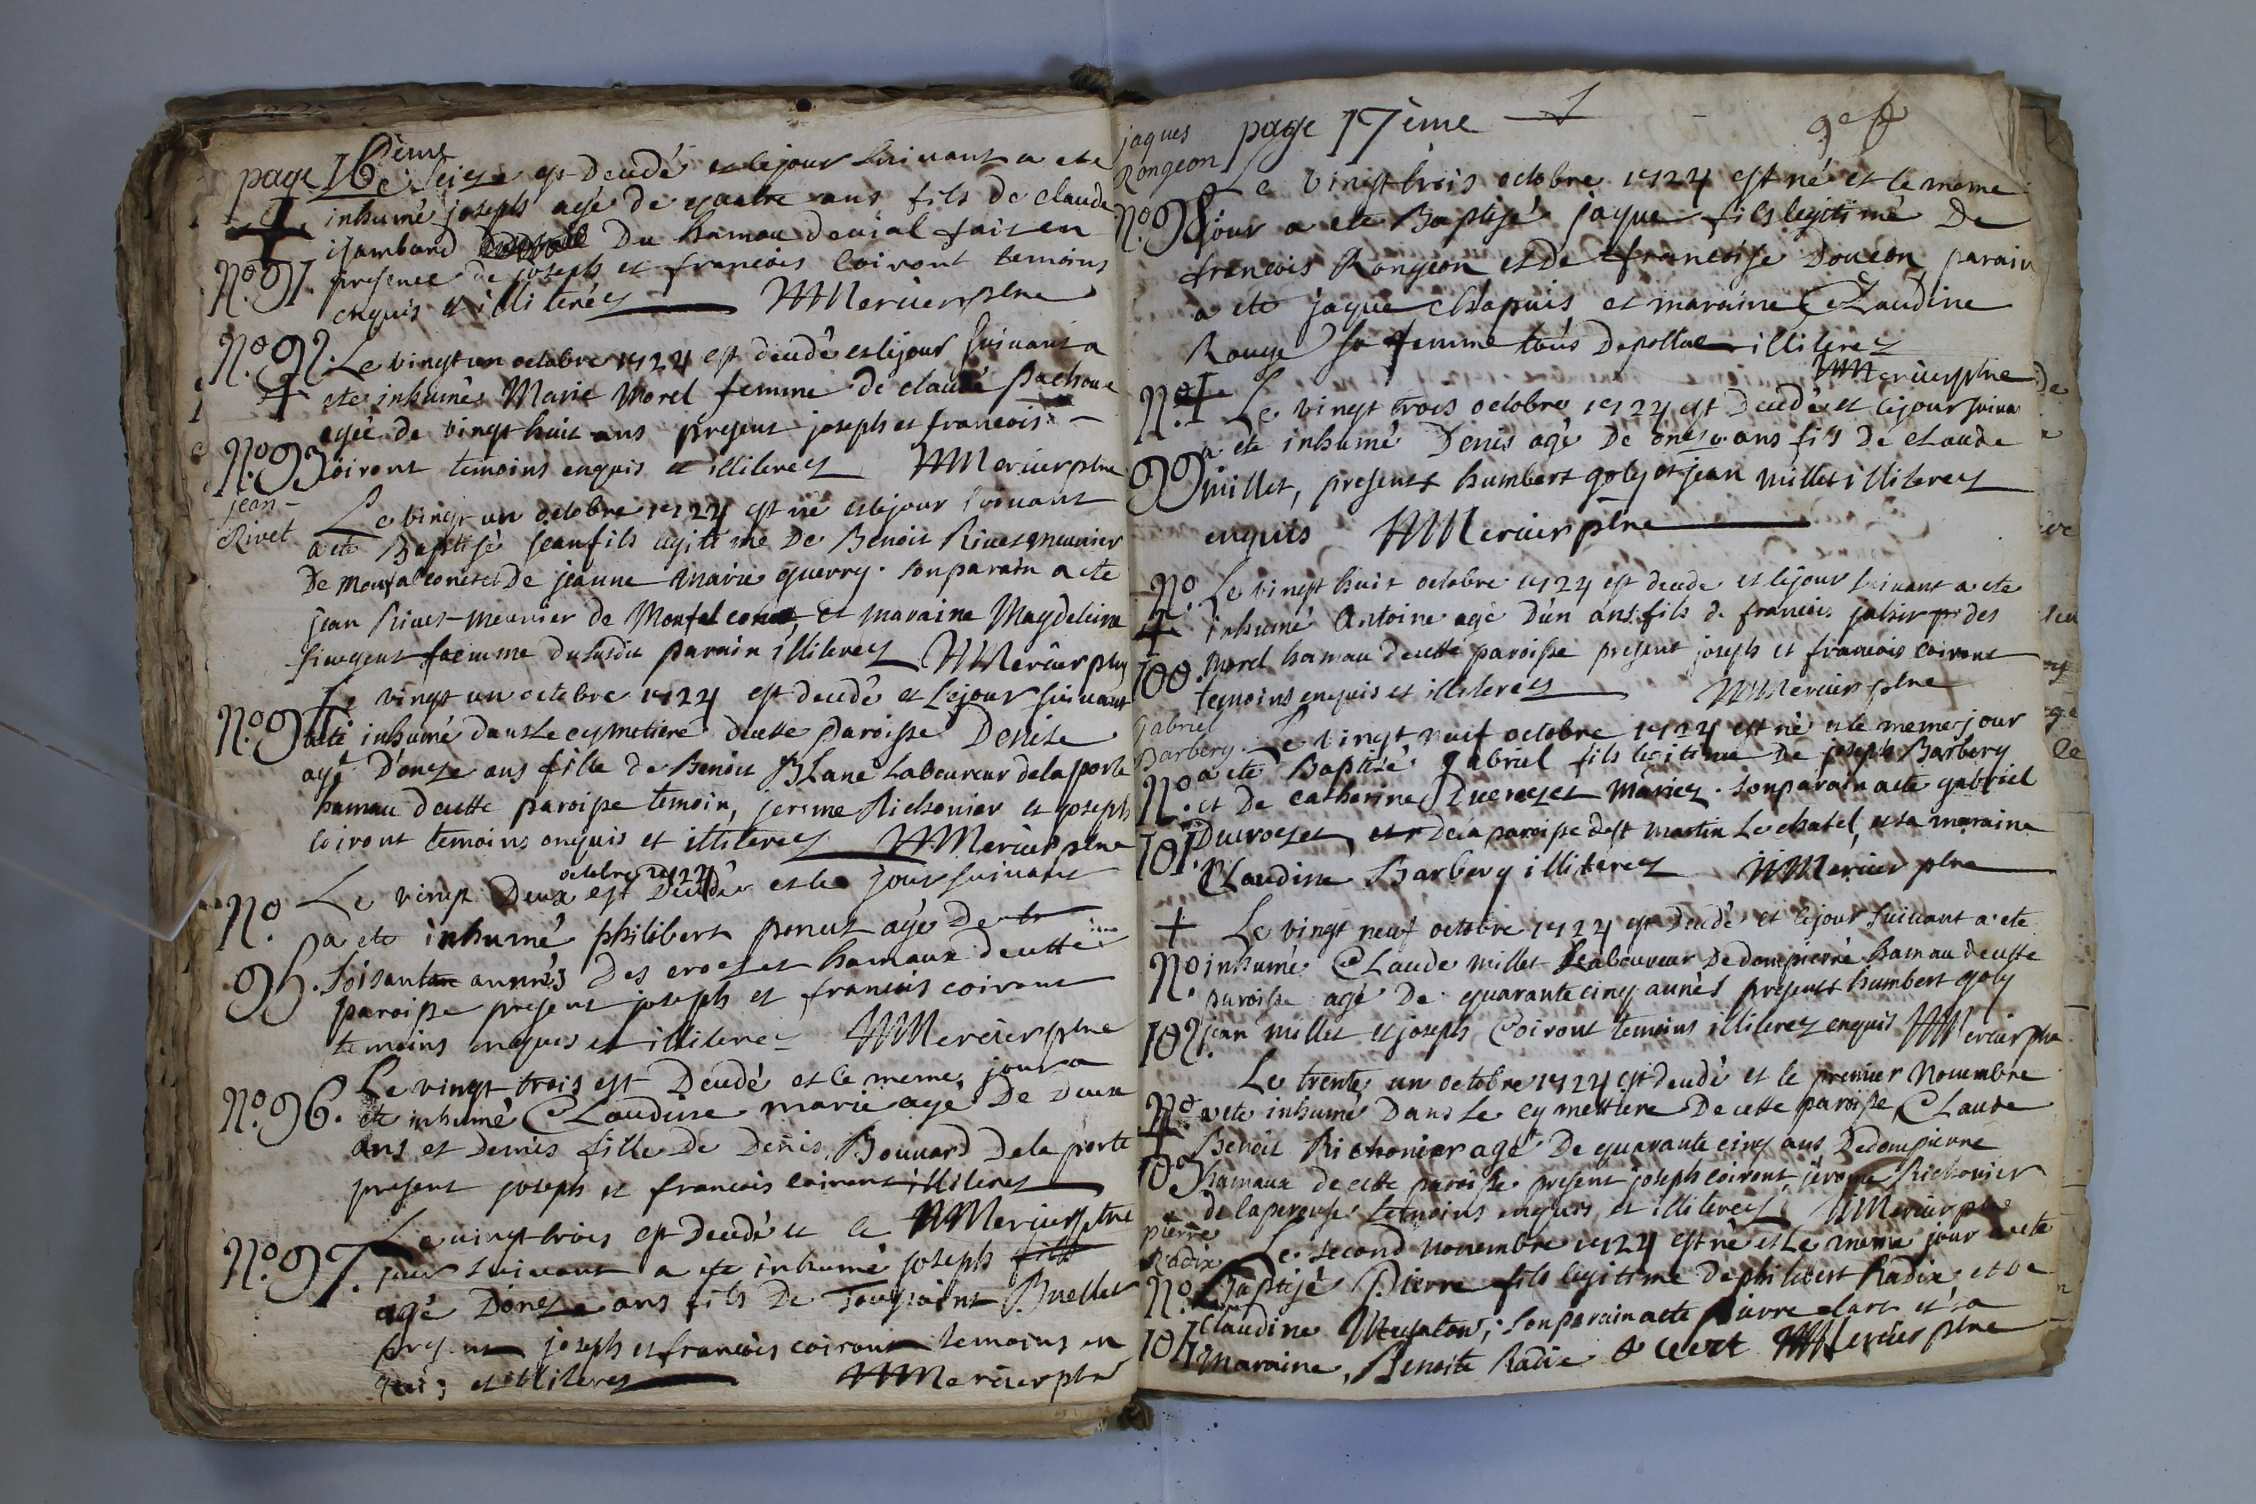 page 16ème
Le seize est decedé et le jour suivant a ete
inhumé joseph agé de quatre ans fils de claude
isambard du hamau devial fait en
No. 91. presence de joseph et francois Coiront temoins
enquis et illiterez MMercier ptre
No. 92. Le vingt un octobre 1724 est decedé et le jour suivant a
ete inhumée Marie Morel femme de claude pachoux
agée de vingt huit ans present joseph et francois
coiront temoins enquis et illiterez MMercier ptre
No. 93
jean
Rivet
Le vingt un octobre 1724 est né et le jour suivant
a ete Baptisé jean fils legitime De Benoit Rivet meunier
De Monfalconet et De jeanne marie guerry. son parain a ete
jean Rivet meunier de Monfalconet, et maraine Magdeleine
femme du susdit parain illiterez MMercier ptre
Le vingt un octobre 1724 est decedé et le jour suivant
No. 94 a été inhumé dans le cymetiere decette paroisse Denise
agé D'onze ans fille de Benoit BLanc Laboureur de la porte
hamau decette paroisse temoin, jerome Richonier et joseph
Coiront temoins enquis et illiterez MMercier ptre
octobre 1724
No. Le vingt Deux est Decedé et le jour suivant
a ete inhumé philibert perrut agé De
95. soisante années Des crozet hamaux decette
paroisse present joseph et francois coiront
temoins enquis et illiterez MMercier ptre
No. 96. Le vingt trois est Decedé et le meme jour a
ete inhumé CLaudine marie agé De Deux
ans et demis fille De Denis Bouvard Dela porte
present joseph et francois coiront illiterez
MMercier ptre
No. 97. Le vingt trois est Decedé et le
jour suivant a ete inhumé joseph fils
agé D'onze ans fils De Toussaint Buellet
present joseph et francois coiront temoins en
quis et illiterez MMercier ptre
jaques
Rongeon
page 17ème
Le vingt trois octobre 1724 est né et le meme
No. 98 jour a ete Baptisé jaque fils legitime De
francois Rongeon et De francoise Doucon, parain
a ete jaque chapuis, et maraine CLaudine
Rouge sa femme tous Depolliac illiterez
MMercier ptre
No. Le vingt trois octobre 1724 est Decedé et le jour suiva
a ete inhumé Denis agé De onze ans fils De cLaude
99 millet, present humbert goly et jean millet illiterez
enquis MMercier ptre
No. Le vingt huit octobre 1724 est decede et le jour suivant a ete
inhumé Antoine agé d'un ans fils de francois des
100 morel hamau decette paroisse present joseph et francois coiront
temoins enquis et illiterez MMercier ptre
Gabriel
Barbery
Le vingt neuf octobre 1724 est né et le meme jour
No. a ete Baptisé gabriel fils legitime De joseph Barbery
et De catherine Ducrozet Mariez. son parain a ete gabriel
101. Ducrozet, De la paroisse De st martin Le chatel, et sa maraine
CLaudine Barbery illiterez MMercier ptre
Le vingt neuf octobre 1724 est Decedé et le jour suivant a ete
No. inhumé CLaude millet Laboureur De dompierre hamau decette
paroisse agé De quarante cinq années present humbert goly
102. jean millet et joseph Coiront temoins illiterez enquis MMercier ptre
Le trente un octobre 1724 est decedé et le premier Novembre
No. a ete inhumé Dans Le cymettiere De cette paroisse, CLaude
Benoit Richonier agé De quarante cinq ans De dompierre
103 hamaux de cette paroisse present joseph coiront, jerome Richonier
de la perouse temoins enquis et illiterez MMercier ptre
pierre
Radix
Le second novembre 1724 est né et Le meme jour a ete
No. Baptisé Pierre fils legitime De philibert Radix et De
Claudine son parain a ete pierre clerc et sa
104 maraine, Benoite Radix MMercier ptre